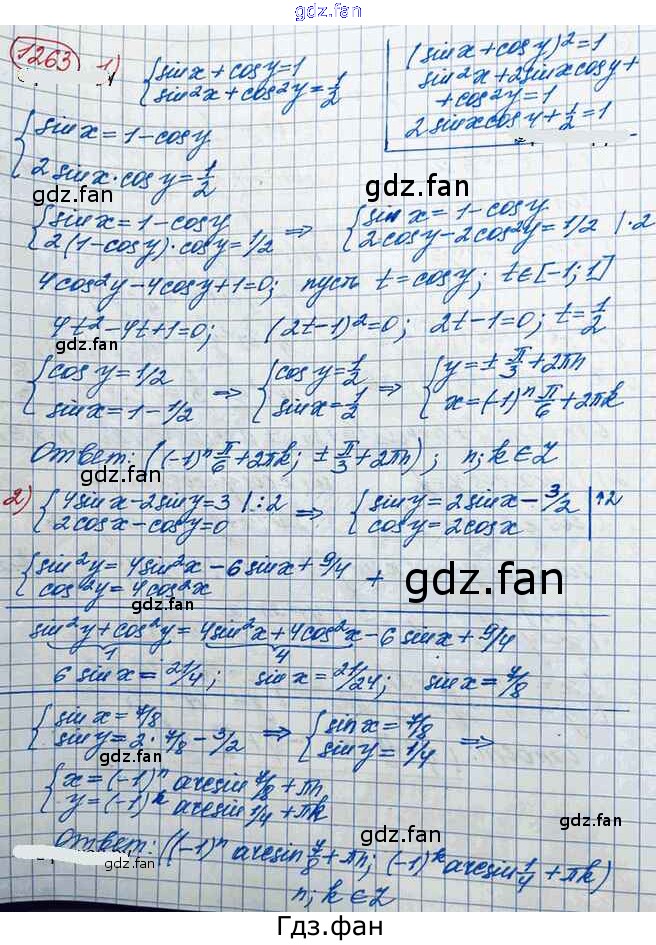 gdz.fan
1263 1) {sinx + cosy = 1
{sin²x + cos²y = 1/2
(sinx + cosy)² = 1
sin²x + 2sinxcosy +
+ cos²y = 1
2sinxcosy + 1/2 = 1
{sinx = 1 - cosy
{2sinx·cosy = 1/2
gdz.fan
gdz.fan
gdz.fan
{sinx = 1 - cosy
{2(1 - cosy)·cosy = 1/2
⇒ {sinx = 1 - cosy
{2cosy - 2cos²y = 1/2 |·2
gdz.fan
gdz.fan
4cos²y - 4cosy + 1 = 0; пусть t = cosy; t ∈ [-1; 1]
4t² - 4t + 1 = 0; (2t - 1)² = 0; 2t - 1 = 0; t = 1/2
gdz.fan
{cosy = 1/2
{sinx = 1 - 1/2
⇒ {cosy = 1/2
{sinx = 1/2
⇒ {y = ± π/3 + 2πn
{x = (-1)ⁿ π/6 + 2πk
gdz.fan
Ответ: ((-1)ⁿ π/6 + 2πk; ± π/3 + 2πn); n; k ∈ Z
gdz.fan
gdz.fan
2) {4sinx - 2siny = 3 |:2
{2cosx - cosy = 0
⇒ {siny = 2sinx - 3/2 |↑2
{cosy = 2cosx
gdz.fan
{sin²y = 4sin²x - 6sinx + 9/4
{cos²y = 4cos²x +
gdz.fan
gdz.fan
sin²y + cos²y = 4sin²x + 4cos²x - 6sinx + 9/4
1 4
6sinx = 21/4; sinx = 21/24; sinx = 7/8
gdz.fan
gdz.fan
{sinx = 7/8
{siny = 2·7/8 - 3/2
⇒ {sinx = 7/8
{siny = 1/4 ⇒
gdz.fan
gdz.fan
{x = (-1)ⁿ arcsin 7/8 + πn
{y = (-1)ᵏ arcsin 1/4 + πk
gdz.fan
Ответ: ((-1)ⁿ arcsin 7/8 + πn; (-1)ᵏ arcsin 1/4 + πk)
gdz.fan
gdz.fan
n; k ∈ Z
Гдз.фан